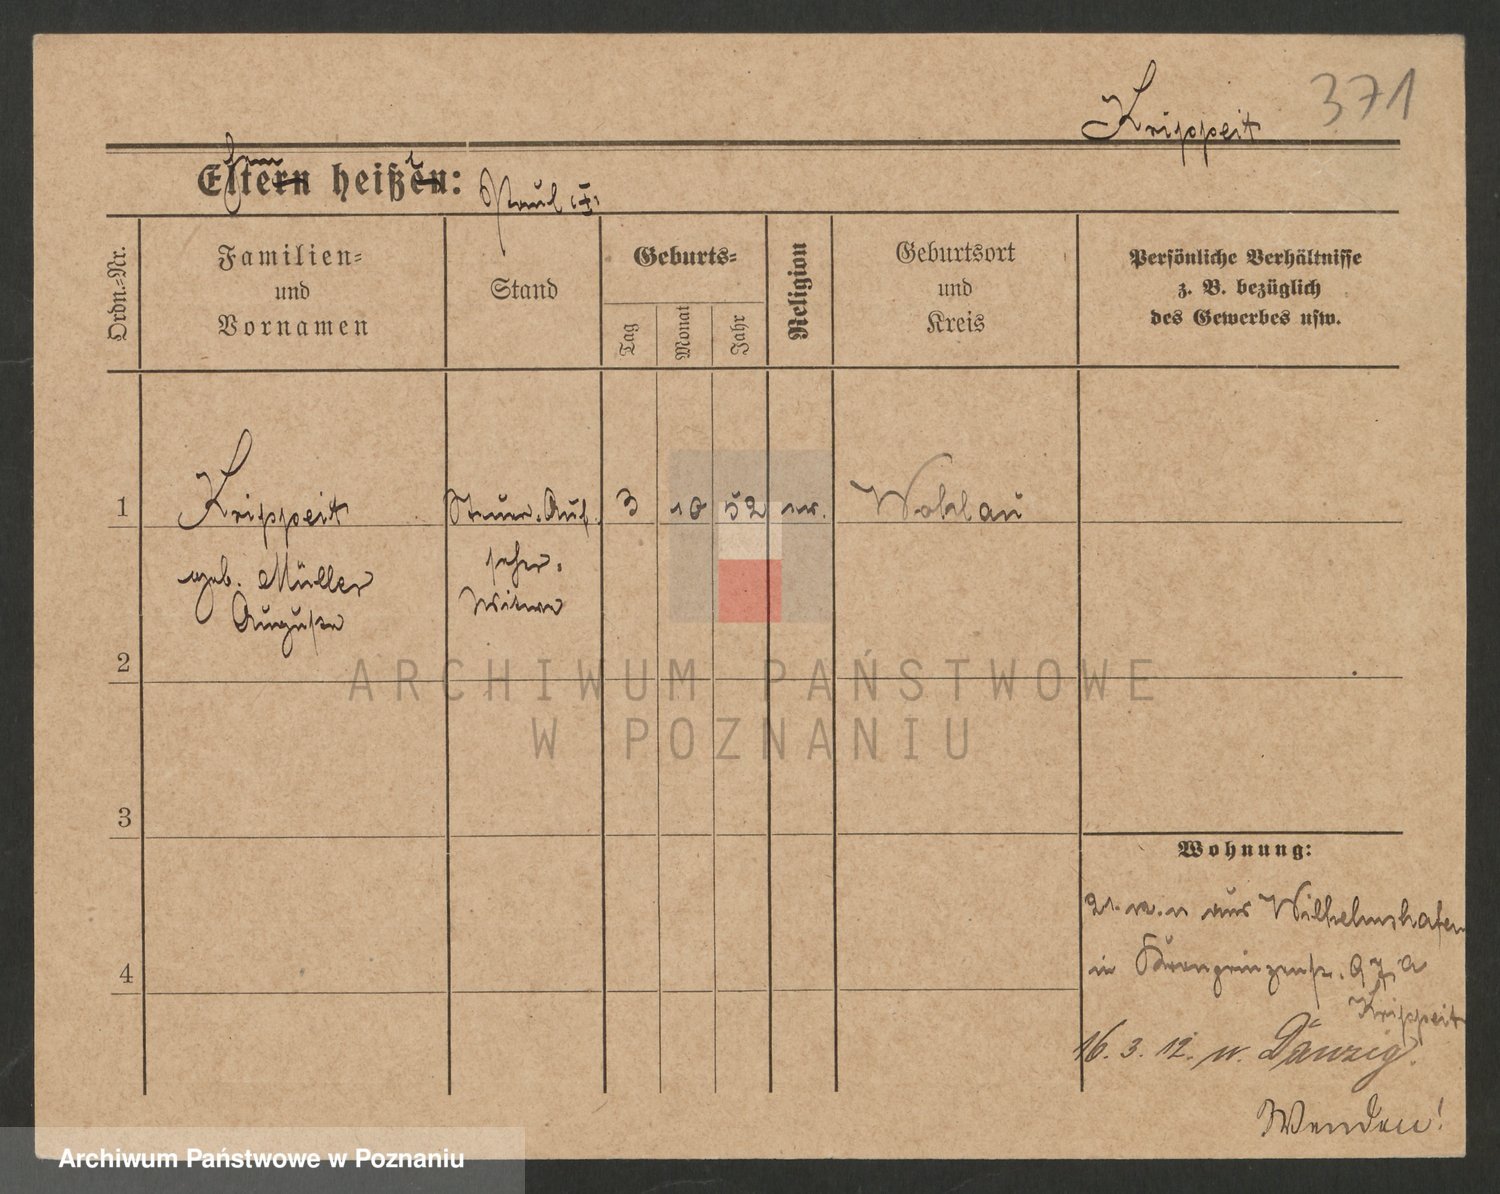 371
Krippeit
Eltern heißen:
Paul (†)
Ordn.-Nr.
Familien-
und
Vornamen
Stand
Geburts-
Tag
Monat
Jahr
Religion
Geburtsort
und
Kreis
Persönliche Verhältnisse
z. B. bezüglich
des Gewerbes usw.
1
Krippeit
Steuer-Auf
3
10
52
ev.
Wohlau
geb. Müller
seher-
Auguste
Witwe
2
3
4
Wohnung:
aus Wilhelmshafen
in Kronprinzenstr. 97a
Krippeit
16. 3. 12. n. Danzig.
Wenden!
ARCHIWUM PAŃSTWOWE
W POZNANIU
Archiwum Państwowe w Poznaniu